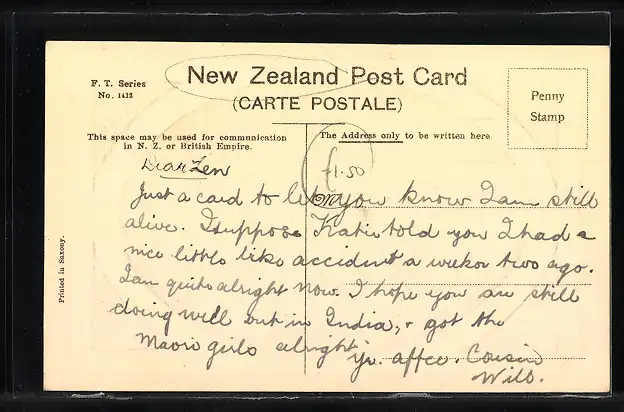 New Zealand Post Card
(CARTE POSTALE)
F. T. Series
No. 1412
Penny
Stamp
This space may be used for communication
in N. Z. or British Empire.
The Address only to be written here.
Printed in Saxony.
£1.50
Dear Len
Just a card to let you know I am still
alive. I suppose Katie told you I had a
nice little bike accident a week or two ago.
I am quite alright now. I hope you are still
doing well out in India, + got the
Maori girls alright yr. affec. Cousin
Will.